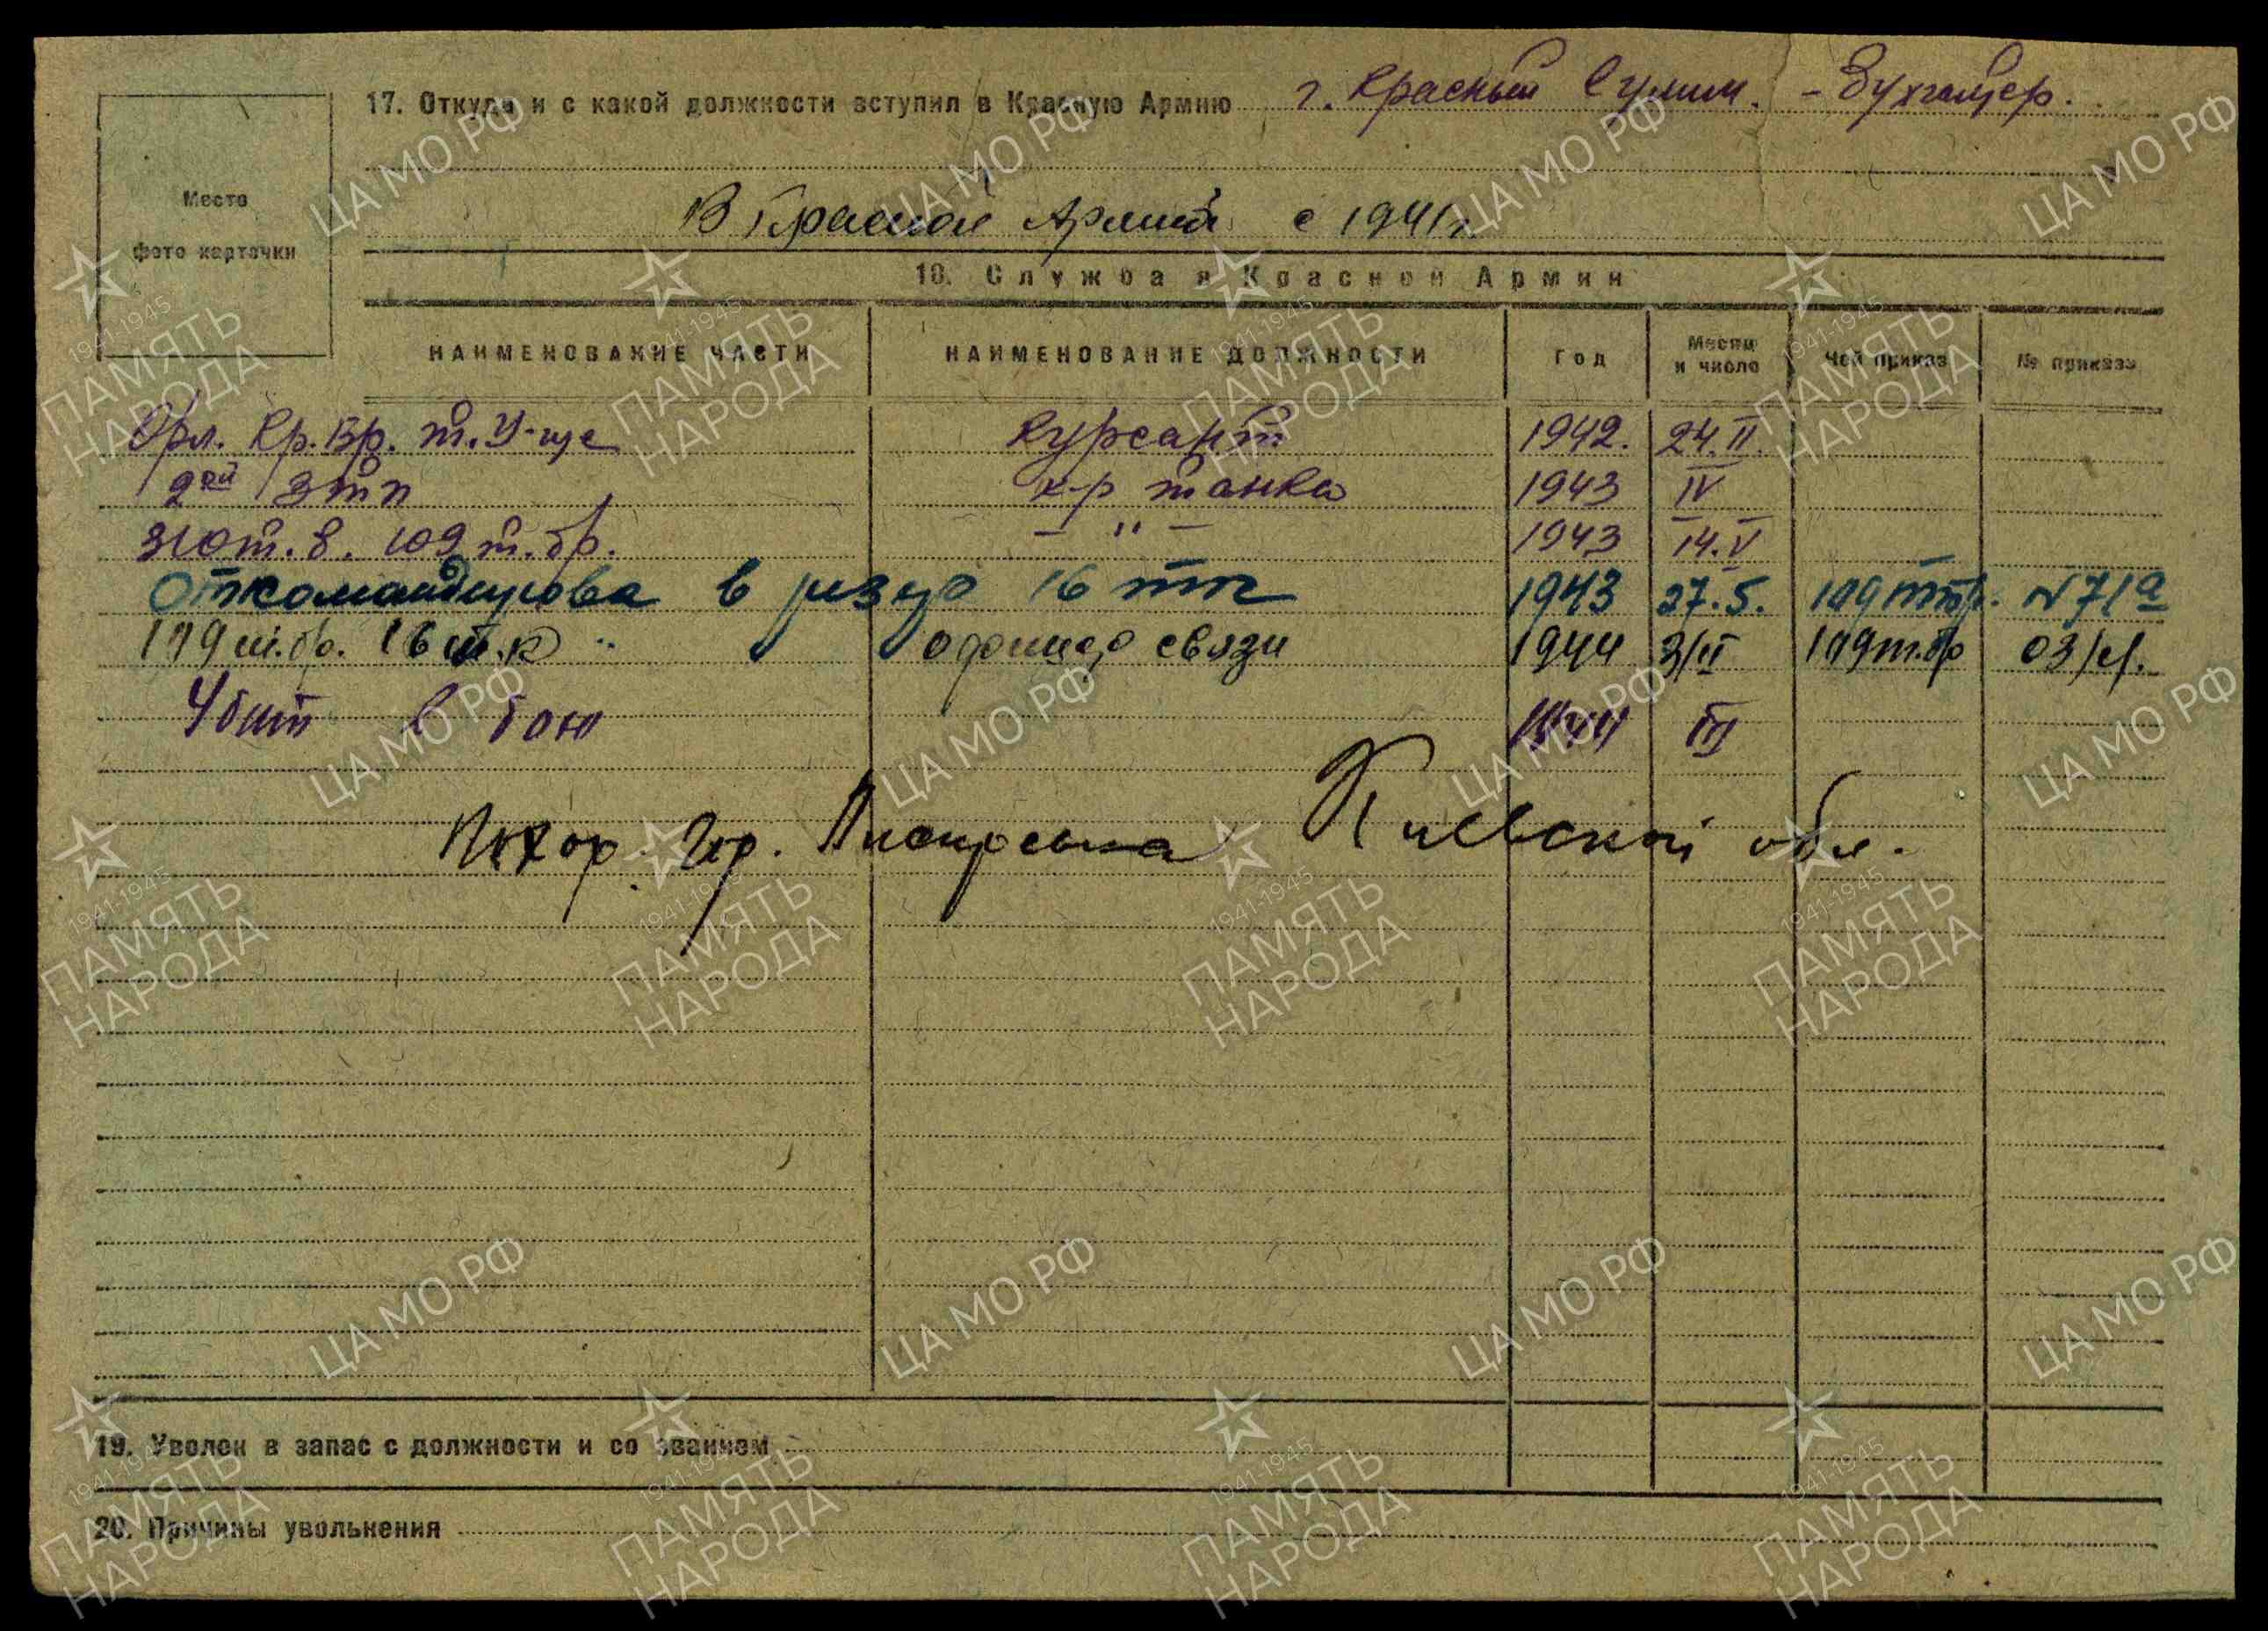 17. Откуда и с какой должности вступил в Красную Армию г. Красный Сулин. - Бухгалтер.
Место
фото карточки
В Красной Армии с 1941 г.
18. Служба в Красной Армии
НАИМЕНОВАНИЕ ЧАСТИ НАИМЕНОВАНИЕ ДОЛЖНОСТИ Год Месяц и число Чей приказ № приказа
Орл. Кр. Бр. т. У-ще Курсант 1942. 24.II.
2ой зтп к-р танка 1943 IV
310 т.б. 109 т.бр. — " — 1943 14.V
Откомандирован в резерв 16 тк 1943 27.5. 109 тбр. N 71а
109 т.бр. 16 т.к. офицер связи 1944 3/II 109 т.бр 03/
Убит в бою 1944 III
Похор. Киевской обл.
19. Уволен в запас с должности и со званием
20. Причины увольнения
ЦА МО РФ
1941-1945
ПАМЯТЬ
НАРОДА